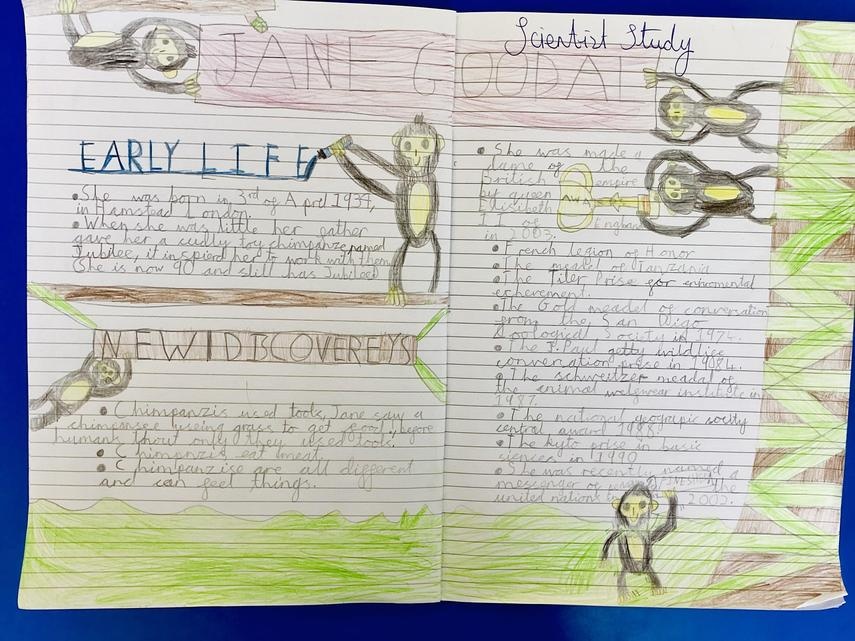 JANE GOODAL
Scientist Study
EARLY LIFE
• She was born in 3rd of April 1934,
in Hamstead London.
• When she was little her father
gave her a cudly toy chimpanze, named
Jubilee, it inspierd her to work with them
She is now 90 and still has Jubileed
NEW DISCOVEREYS
• Chimpanzis used tools, Jane say a
chimpansee useing grass to get food, before
humans thout only they used tools.
• Chimpanzis eat meat.
• Chimpanzise are all different
and can feel things.
• She was made a
dame of the
British empire
by queen
Elisibeth AWA
II of England
in 2003.
• French legion of Honor
• The meadel of Tanzania
• The Tiler Prise for enviromental
echevement.
• The Gold meadel of conversation
from the San Digo
Zoological Society in 1974.
• The J. Paul getty wildlife
conversation prise in 1984.
• The schweitzer meadal of
the animal welfwear institute in
1987.
• The national geograpic society
central award 1988.
• The kyto prise in basic
siences in 1990
• She was recently named a
messenger of the
united nations in 2002.